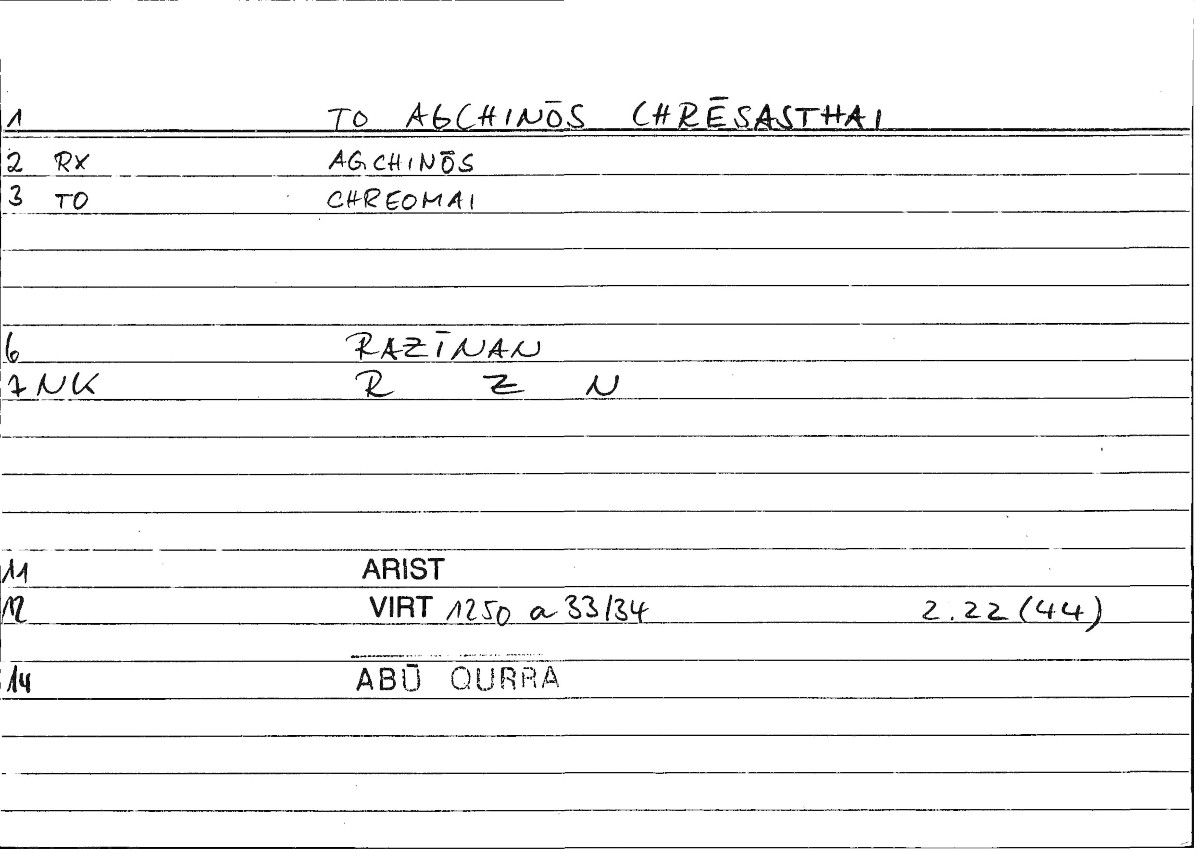 1 TO AGCHINŌS CHRĒSASTHAI
2 RX AGCHINŌS
3 TO CHREOMAI
6 RAZĪNAN
7 NK R Z N
11 ARIST
12 VIRT 1250 a 33/34 2.22 (44)
14 ABŪ QURRA